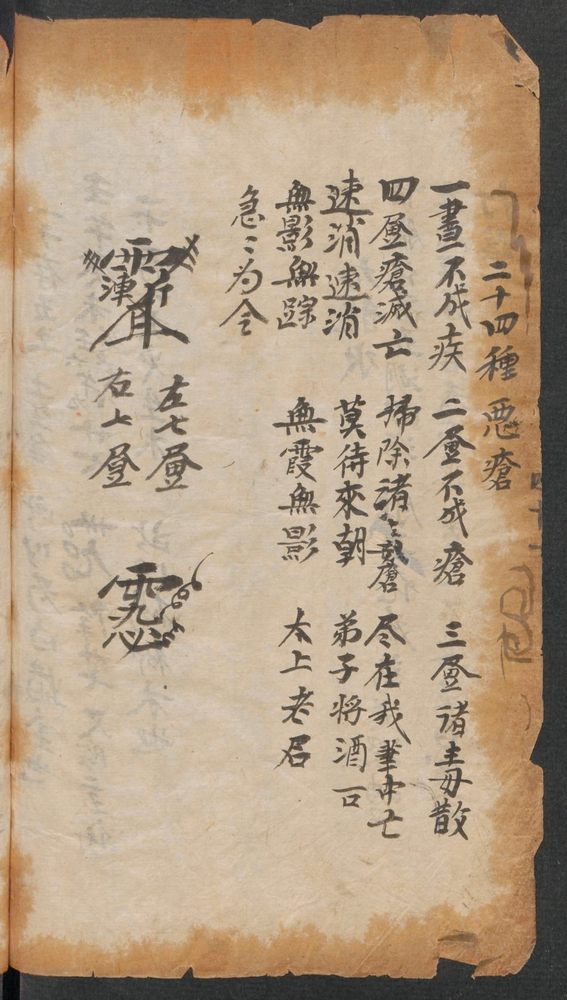 二十四種悪瘡
一畫不成疾 二畫不成瘡 三畫诸毒散
四畫瘡滅亡 掃除諸瘡 尽在我筆中亡
速消速消 莫待來朝 弟子将酒一口
無影無踪 無霞無影 太上老君
急〻为令
左七畫
右七畫